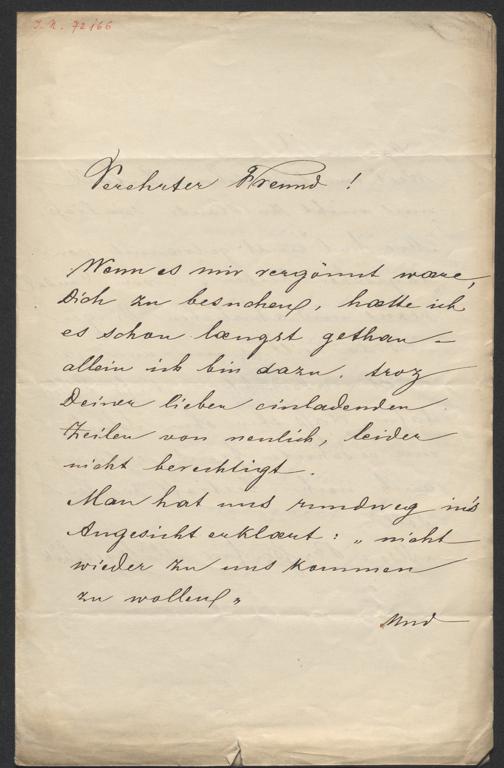 I. N. 72166
Verehrter Freund !
Wenn es mir vergönnt wære,
Dich zu besuchen, hætte ich
es schon længst gethan –
allein ich bin dazu, troz
Deiner lieben einladenden
Zeilen von neulich, leider
nicht berechtigt.
Man hat uns rundweg in's
Angesicht erklært: „nicht
wieder zu uns kommen
zu wollen"
Und